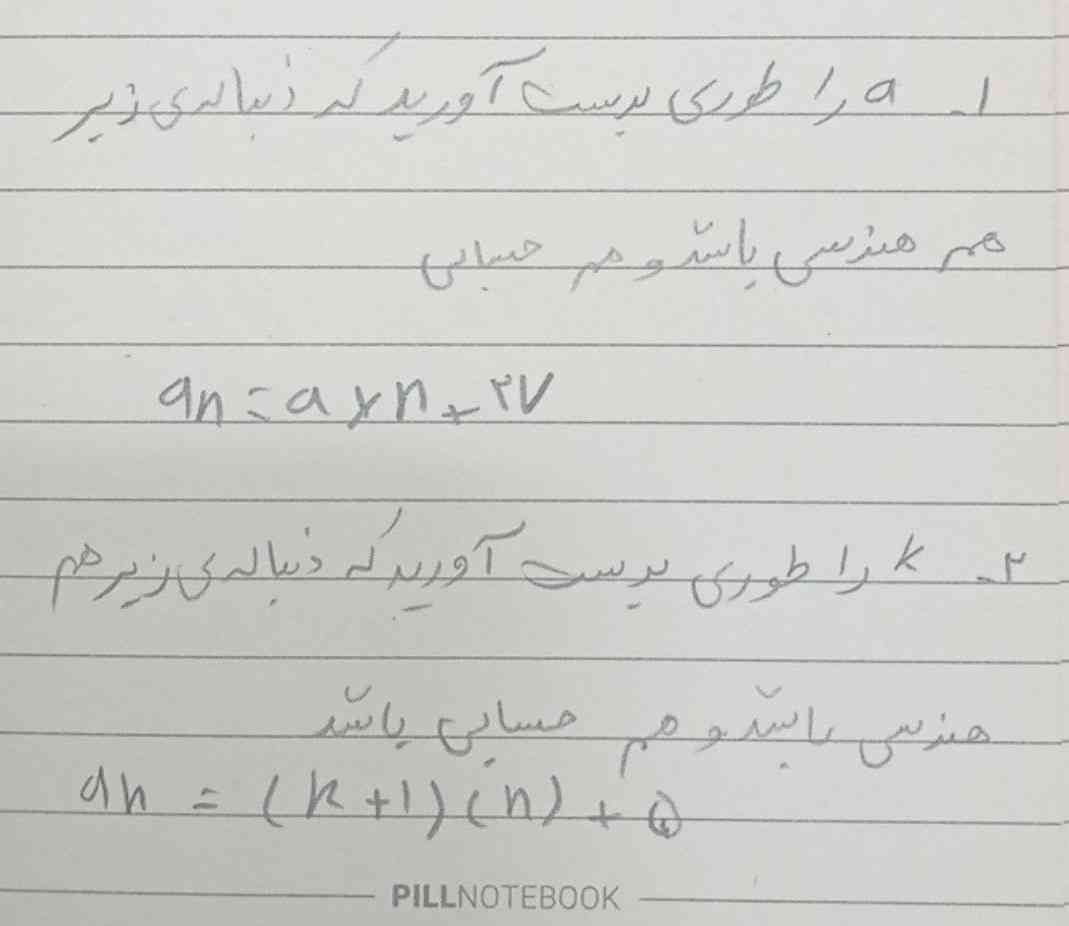 ۱ـ a را طوری بدست آورید که دنباله‌ی زیر
هم هندسی باشد و هم حسابی
an = a × n + ۲۷
۲ـ k را طوری بدست آورید که دنباله‌ی زیر هم
هندسی باشد و هم حسابی باشد
an = (k+1)(n) + ۵
PILLNOTEBOOK